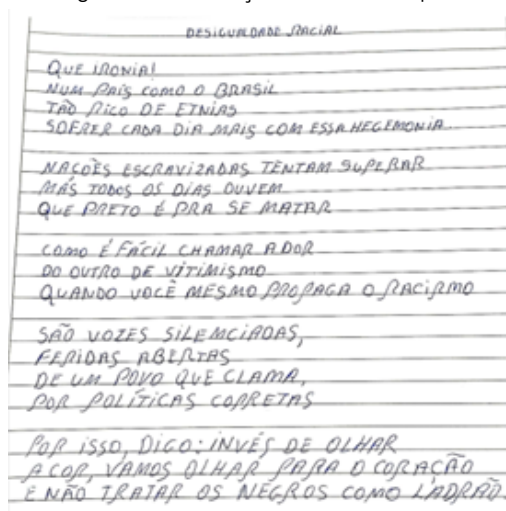 DESIGUALDADE RACIAL
QUE IRONIA!
NUM PAÍS COMO O BRASIL
TÃO RICO DE ETNIAS
SOFRER CADA DIA MAIS COM ESSA HEGEMONIA
NAÇÕES ESCRAVIZADAS TENTAM SUPERAR
MÁS TODOS OS DIAS OUVEM
QUE PRETO É PRA SE MATAR
COMO É FÁCIL CHAMAR A DOR
DO OUTRO DE VITIMISMO
QUANDO VOCÊ MESMO PROPAGA O RACIRMO
SÃO VOZES SILEMCIADAS,
FERIDAS ABERTAS
DE UM POVO QUE CLAMA,
POR POLÍTICAS CORRETAS
POR ISSO, DIGO: INVÉS DE OLHAR
A COR, VAMOS OLHAR PARA O CORAÇÃO
E NÃO TRATAR OS NEGROS COMO LADRÃO.